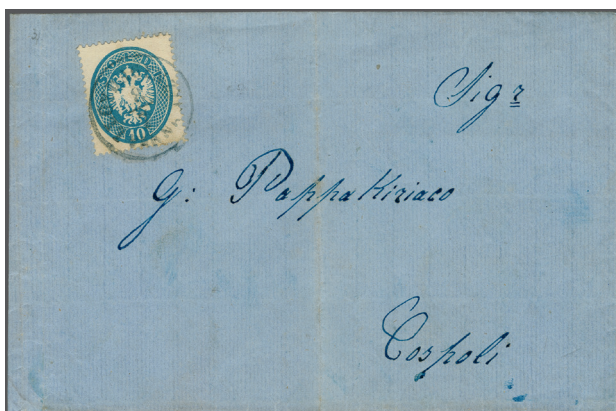 10
Sigr
G: PappaKiriaco
Cospoli